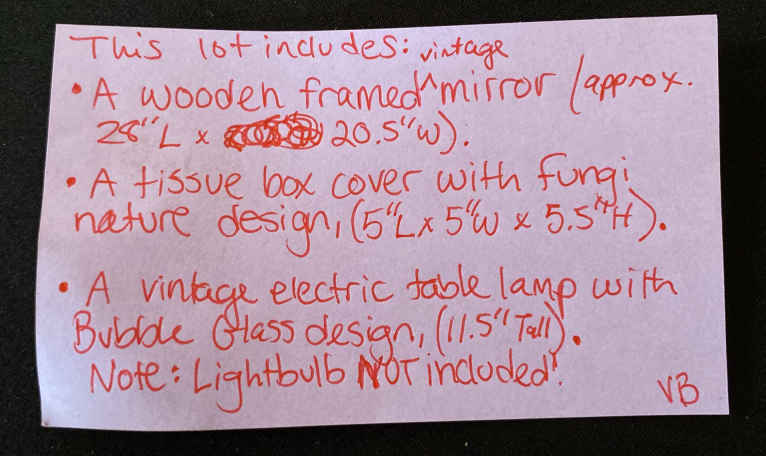 This lot includes:
• A wooden framed ^vintage mirror (approx.
28"L x 20.5"W).
• A tissue box cover with fungi
nature design, (5"L x 5"W x 5.5"H).
• A vintage electric table lamp with
Bubble Glass design, (11.5" Tall).
Note: Lightbulb NOT included!
VB